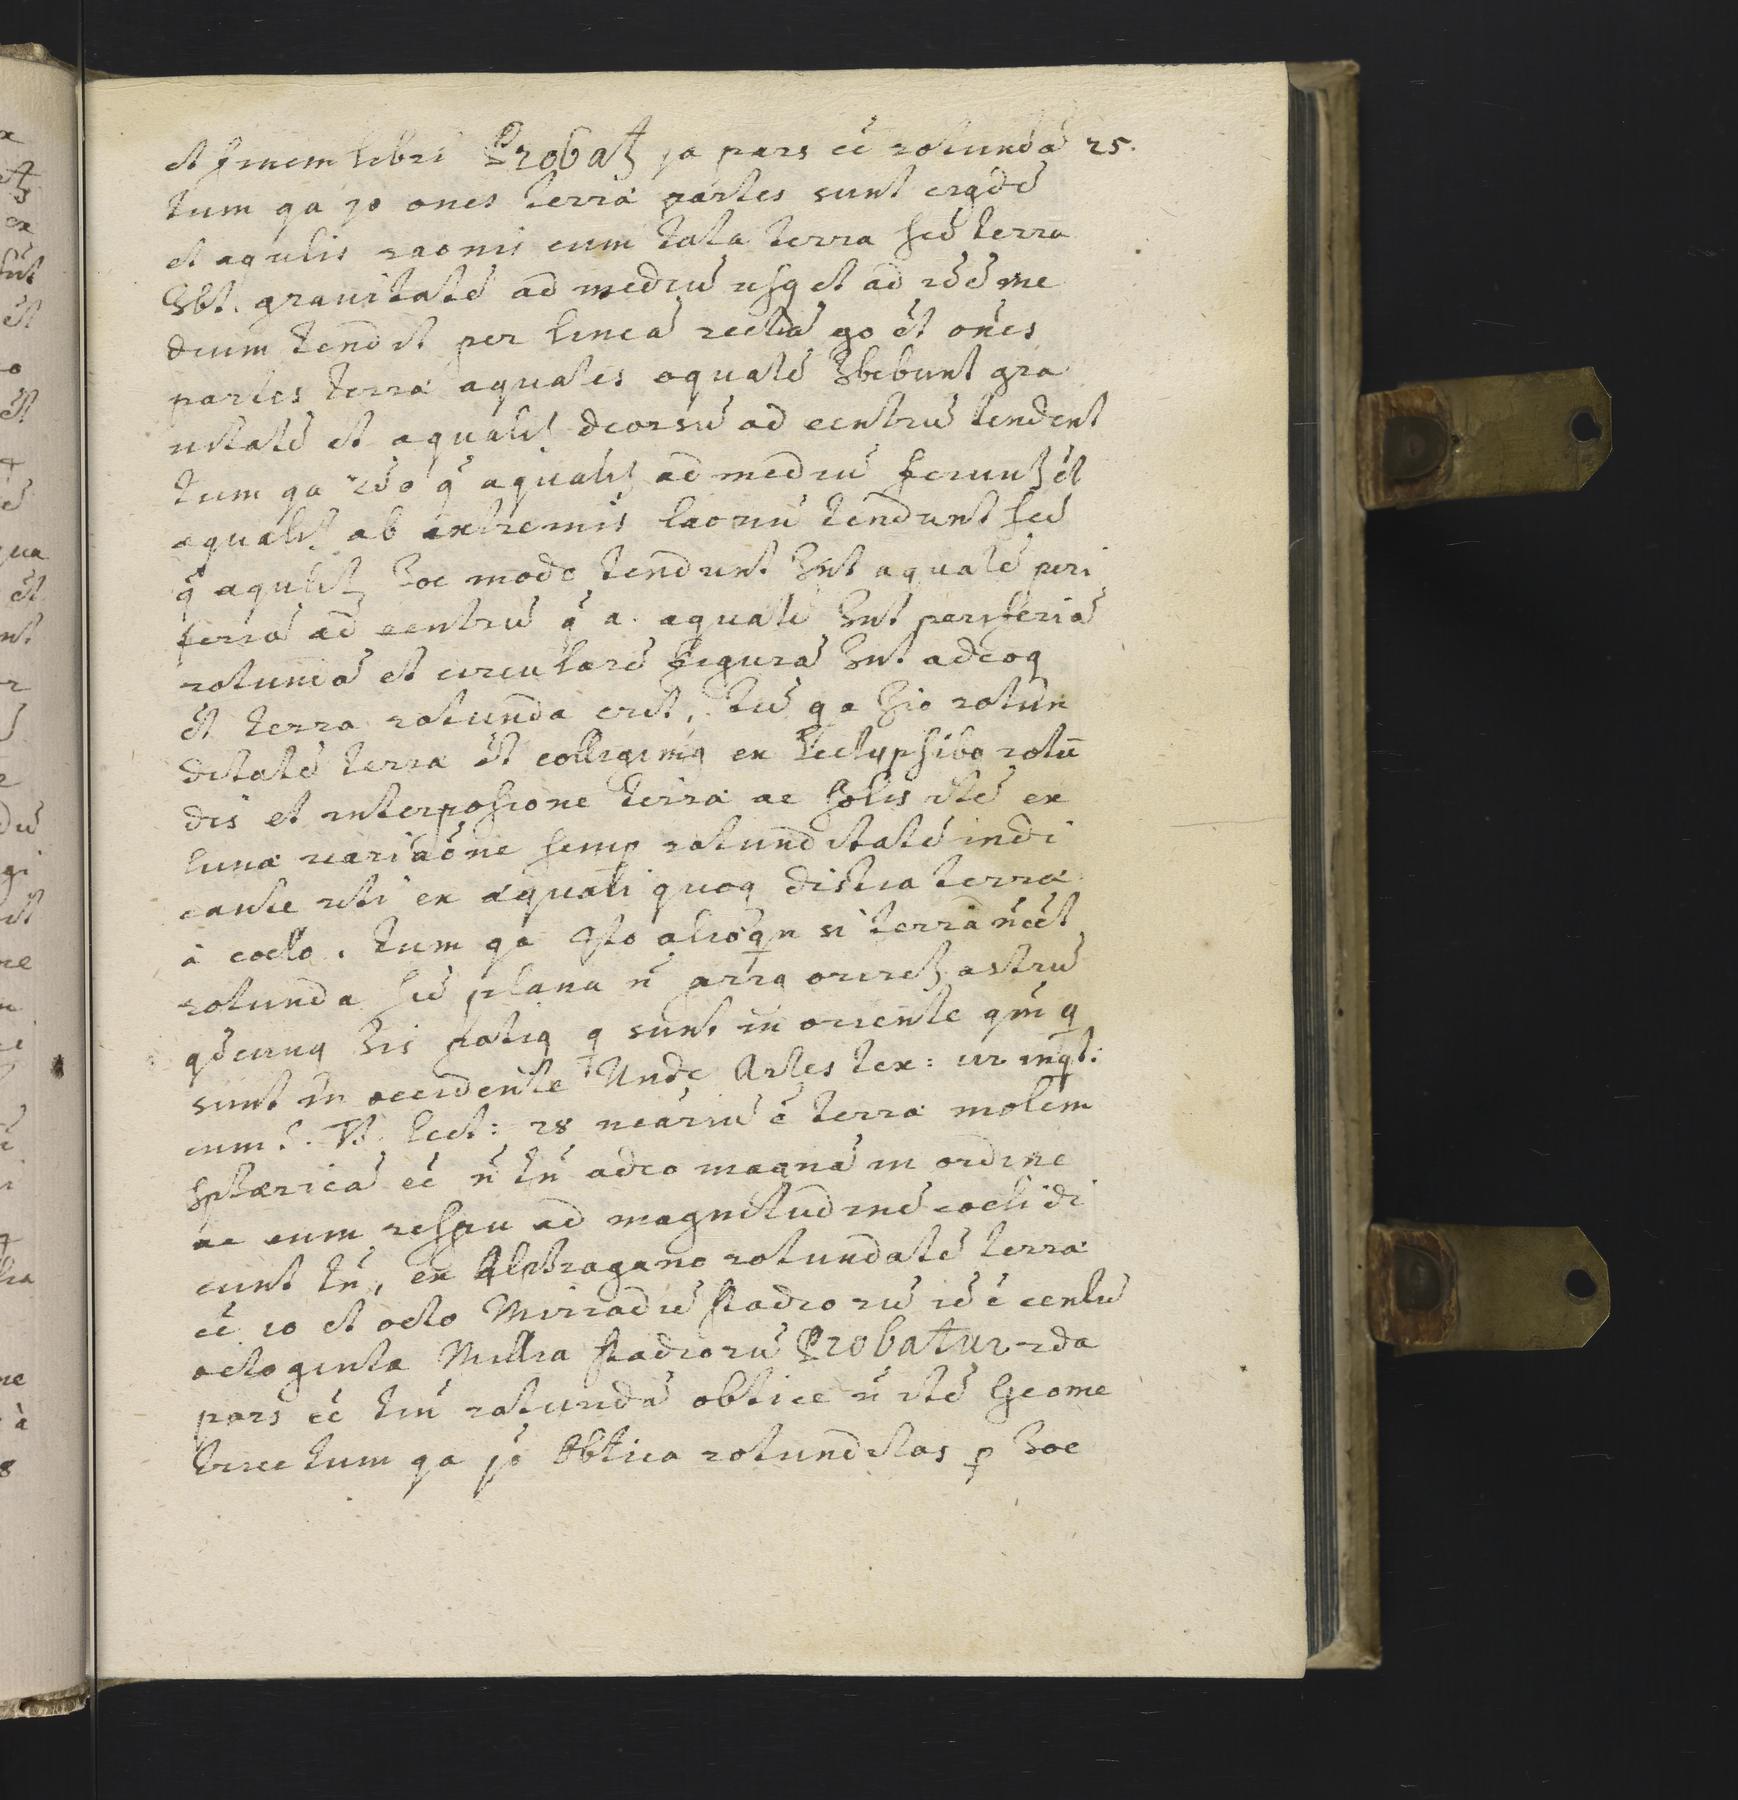 et finem libri Probatʒ ja pars eē rotundā 25.
tum qa jo ōnes terræ partes sunt eiqdē
et aqulis raonis cum tota terra sed terra
Hbt. grauitatē ad mediū usq et ad idē me
dium tendit per lineā rectā go ēt ōnes
partes terræ æquales æqualē Hbebunt gra
uitatē et æqualiʒ deorsū ad centrū tendent
tum qa 2do q̄ æqualiʒ ad mediū ferunʒ ēt
æqualiʒ ab extremis laorū tendunt sed
q̄ æqulitʒ Hoc modo tendunt Hnt æqualē peri
feriā ad centrū q̄ a. æqualē Hnt periferiā
rotundā et circularē figurā Hnt adeoq
ēt terra rotunda erit, tū qa 3io rotun
ditatē terræ ēt colligimq ex Ecclypsibq rotū
dis et interposione terræ ac solis itē ex
lunæ variaōne semp rotunditatē indi
cante uti ex æquali quoq distia terræ
à coelo. tum qa 4to alioqn si terra n̄ eēt
rotunda sed plana n̄ priq orireʒ astrū
qdcunq His potiq q sunt in oriente qm̄ q
sunt in occidente Unde Artes tex: ur inqt:
cum S. Th. Lect: 28 nēariū ē terræ molem
sphæricā eē n̄ tn̄ adeo magnā in ordine
ac cum respu ad magnitudinē coeli di
cunt tn̄, ex Alphragano rotundatē terræ
eē 10 et octo Miriadū stadiorū id ē centū
octoginta Millia stadiorū Probatur 2da
pars eē tm̄ rotundā obtice n̄ itē Geome
trice tum qa jo Obtica rotunditas p Hoc